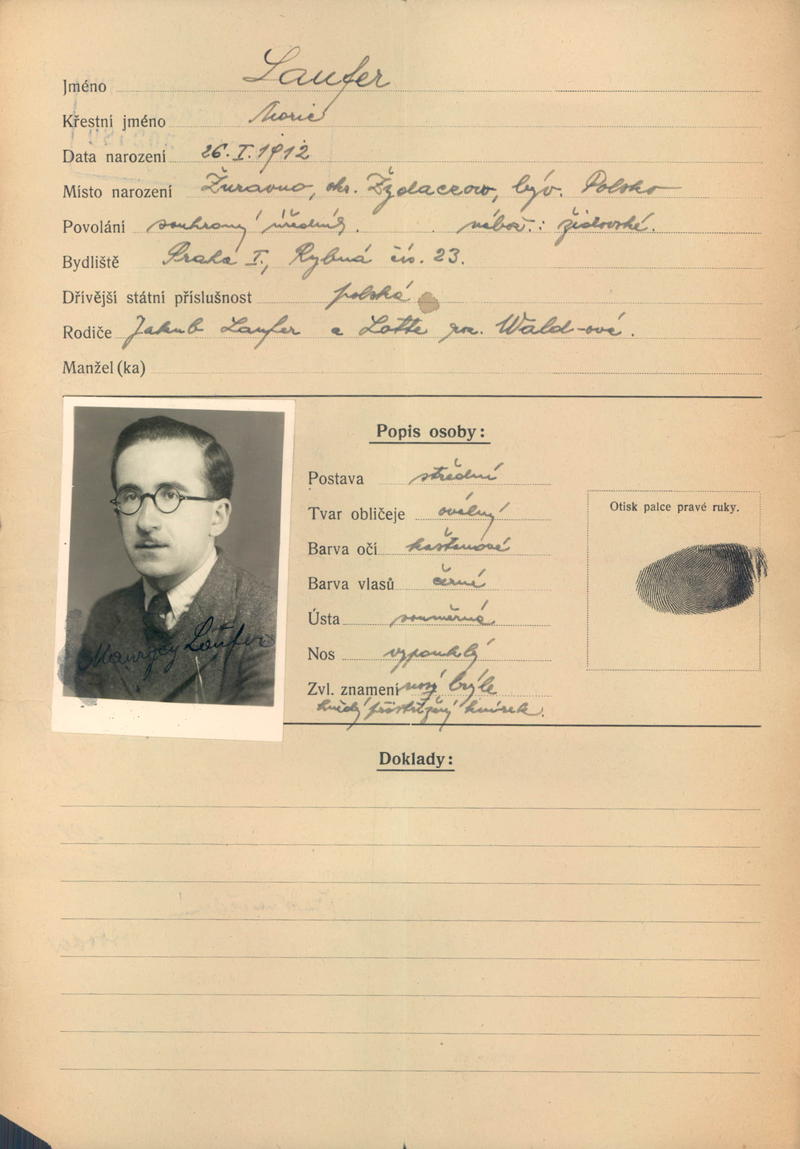 Jméno Laufer
Křestní jméno Moric
Data narození 26.I.1912
Místo narození Žuravno, okr. Žydaczow, býv. Polsko
Povolání soukromý úředník. nábož.: židovské.
Bydliště Praha I., Rybná čís. 23.
Dřívější státní příslušnost polská
Rodiče Jakub Laufer a Lotte roz. Wald-ová.
Manžel (ka)
Popis osoby:
Postava střední
Tvar obličeje oválný
Otisk palce pravé ruky.
Barva očí kaštanové
Barva vlasů černé
Ústa souměrná
Nos vypouklý
Zvl. znamení nosí brýle
hnědý přistřižený knírek.
Maurycy Laufer
Doklady: